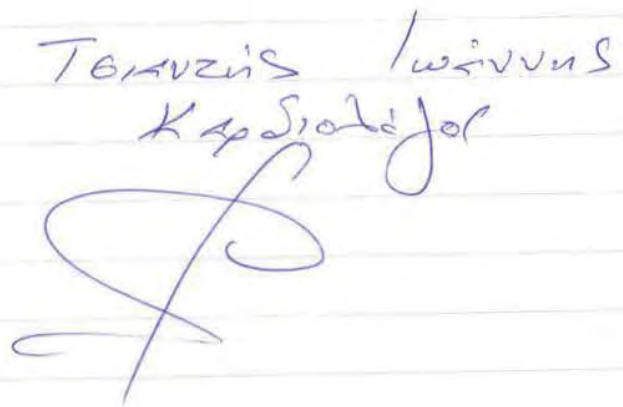 Τσιαντής Ιωάννης
Καρδιολόγος